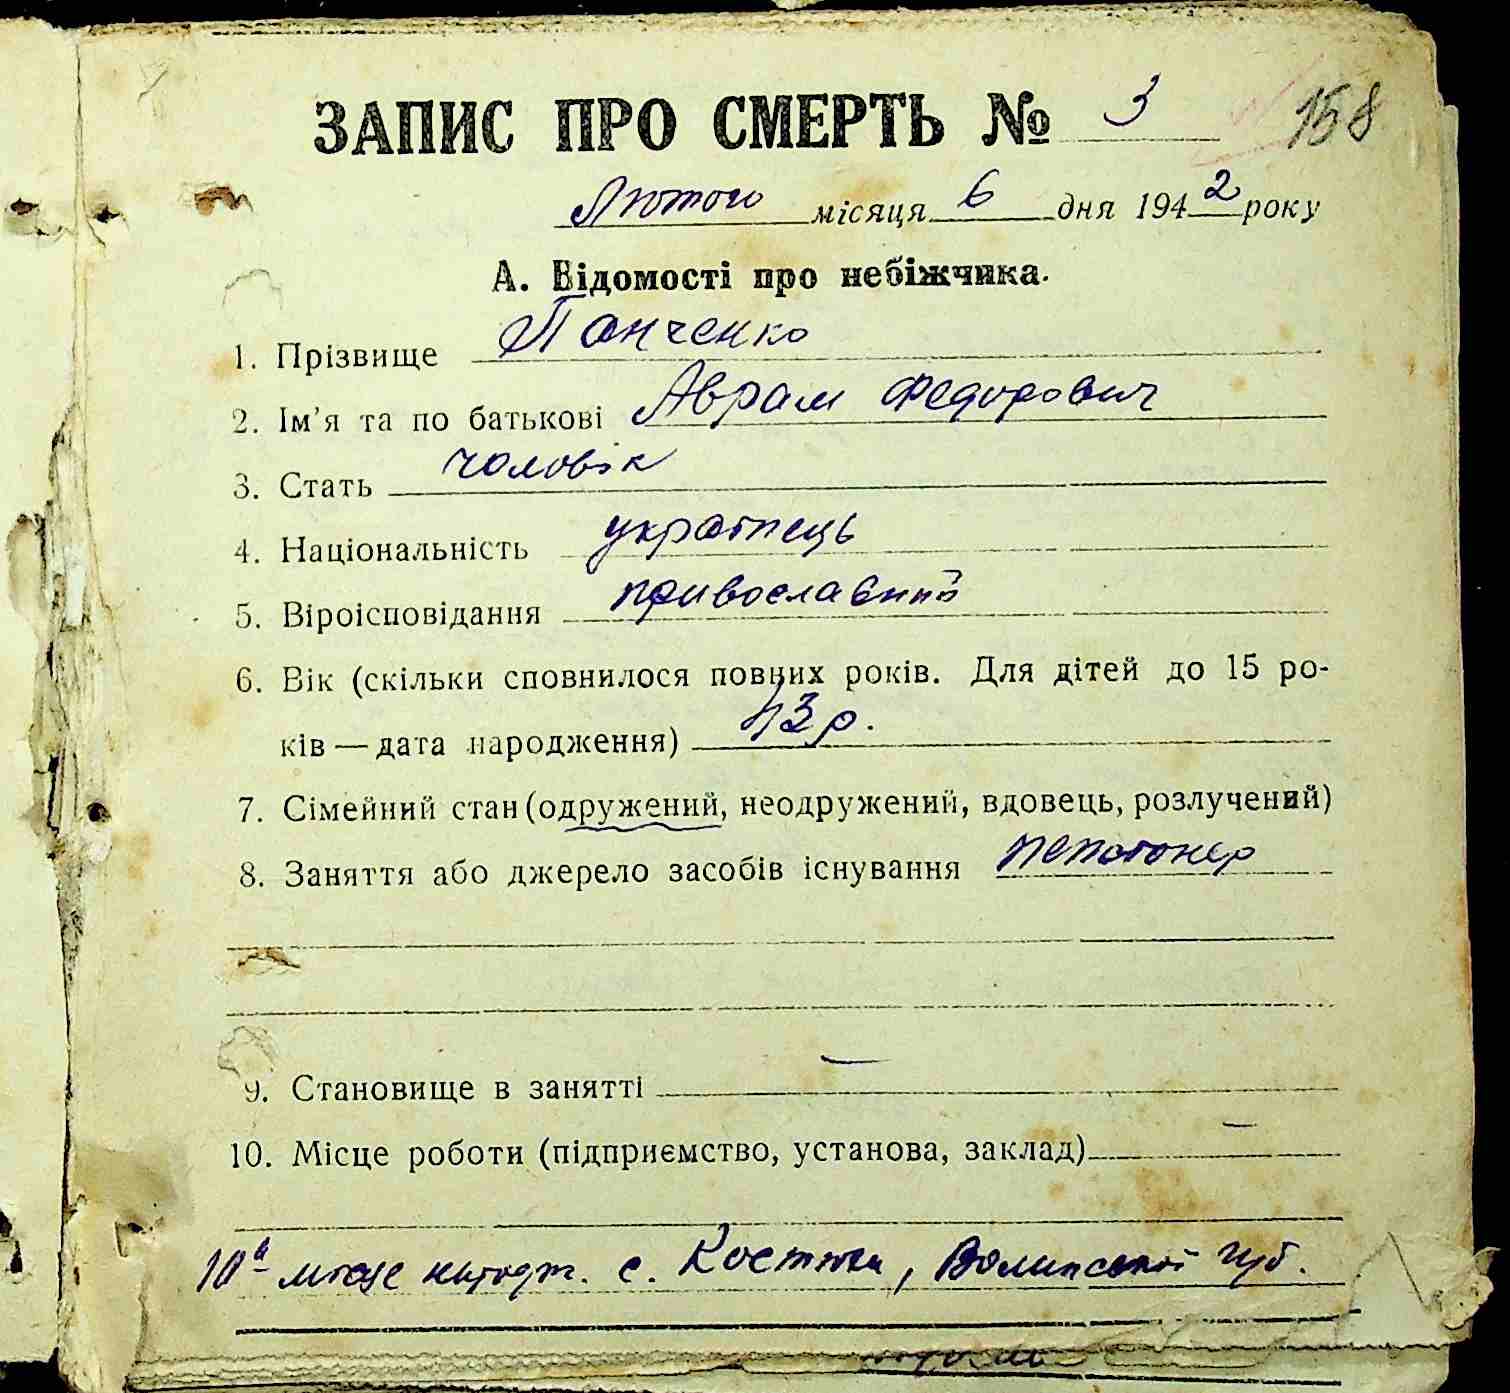 ЗАПИС ПРО СМЕРТЬ № 3 158
Лютого місяця 6 дня 1942 року
А. Відомості про небіжчика.
1. Прізвище Панченко
2. Ім'я та по батькові Аврам Федорович
3. Стать чоловік
4. Національність українець
5. Віроісповідання православний
6. Вік (скільки сповнилося повних років. Для дітей до 15 ро-
ків — дата народження) 43 р.
7. Сімейний стан (одружений, неодружений, вдовець, розлучений)
8. Заняття або джерело засобів існування
9. Становище в занятті —
10. Місце роботи (підприємство, установа, заклад) —
10а місце народж. с. Волинської губ.